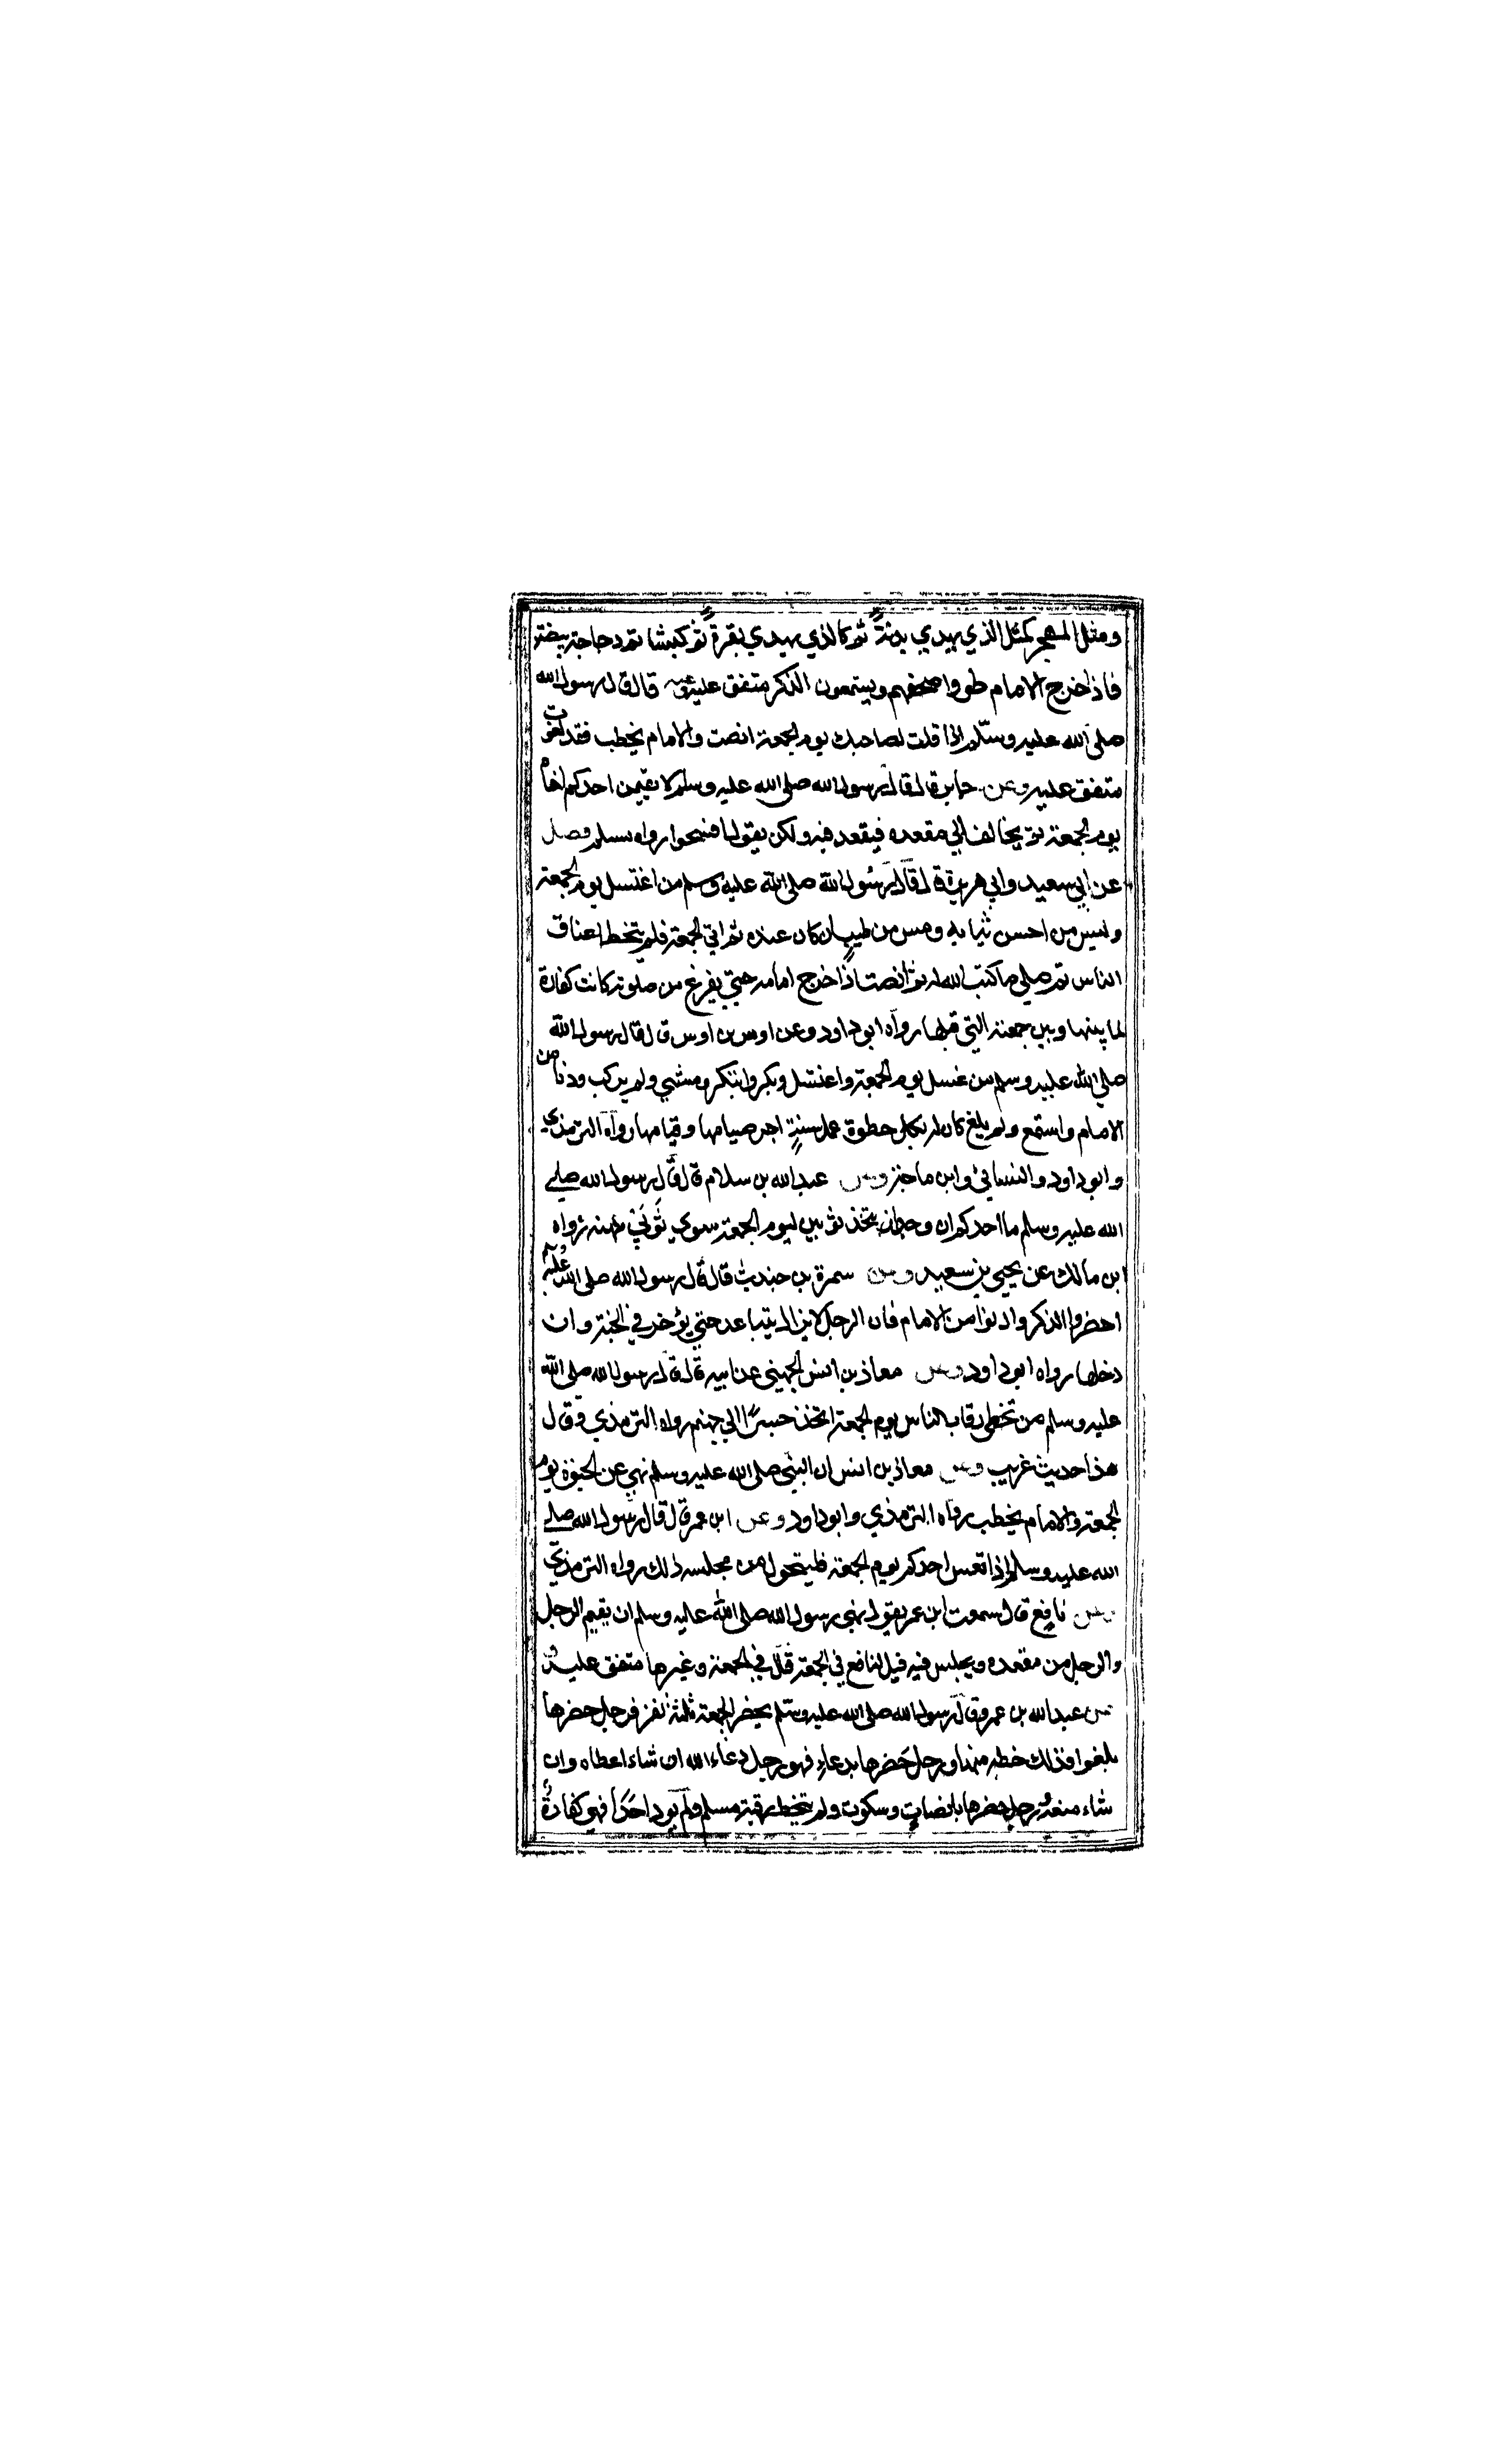 ومثل المهجر كمثل الذي يهدي بدنة ثم كالذي يهدي بقرة ثم كبشا ثم دجاجة ثم بيضة
فاذا خرج الامام طووا صحفهم ويستمعون الذكر متفق عليه وعنه قال قال رسول الله
صلى الله عليه وسلم اذا قلت لصاحبك يوم الجمعة انصت والامام يخطب فقد لغوت
متفق عليه وعن جابر قال قال رسول الله صلى الله عليه وسلم لا يقيمن احدكم اخاه
يوم الجمعة ثم يخالف الي مقعده فيقعد فيه ولكن يقول افسحوا رواه مسلم فصل
عن ابي سعيد وابي هريرة قال قال رسول الله صلى الله عليه وسلم من اغتسل يوم الجمعة
ولبس من احسن ثيابه ومس من طيب ان كان عنده ثم اتي الجمعة فلم يتخط اعناق
الناس ثم صلي ما كتب الله له ثم انصت اذا خرج امامه حتي يفرغ من صلوته كانت كفارة
لما بينها وبين جمعته التي قبلها رواه ابو داود وعن اوس بن اوس قال قال رسول الله
صلي الله عليه وسلم من غسل يوم الجمعة واغتسل وبكر وابتكر ومشي ولم يركب ودنا من
الامام واستمع ولم يلغ كان له بكل خطوة عمل سنة اجر صيامها وقيامها رواه الترمذي
وابو داود والنسائي وابن ماجة وعن عبد الله بن سلام قال قال رسول الله صلي
الله عليه وسلم ما احدكم ان وجد ان يتخذ ثوبين ليوم الجمعة سوي ثوبي مهنته رواه
ابن مالك عن يحيي بن سعيد وعن سمرة بن جندب قال قال رسول الله صلى الله عليه وسلم
احضروا الذكر وادنوا من الامام فان الرجل لا يزال يتباعد حتي يؤخر في الجنة وان
دخلها رواه ابو داود وعن معاذ بن انس الجهني عن ابيه قال قال رسول الله صلى الله
عليه وسلم من تخطى رقاب الناس يوم الجمعة اتخذ جسرا الي جهنم رواه الترمذي وقال
هذا حديث غريب وعن معاذ بن انس ان النبي صلى الله عليه وسلم نهي عن الحبوة يوم
الجمعة والامام يخطب رواه الترمذي وابو داود وعن ابن عمر قال قال رسول الله صلي
الله عليه وسلم اذا نعس احدكم يوم الجمعة فليتحول من مجلسه ذلك رواه الترمذي
وعن نافع قال سمعت ابن عمر يقول نهي رسول الله صلى الله عليه وسلم ان يقيم الرجل
والرجل من مقعده ويجلس فيه قيل لنافع في الجمعة قال في الجمعة وغيرها متفق عليه
وعن عبد الله بن عمرو قال رسول الله صلى الله عليه وسلم يحضر الجمعة ثلثة نفر فرجل حضرها
بلغو افذلك حظه منها ورجل حضرها بدعاء فهو رجل دعاء الله ان شاء اعطاه وان
شاء منعه ورجل حضرها بانصات وسكوت ولم يتخط رقبة مسلم ولم يوذ احدا فهي كفارة